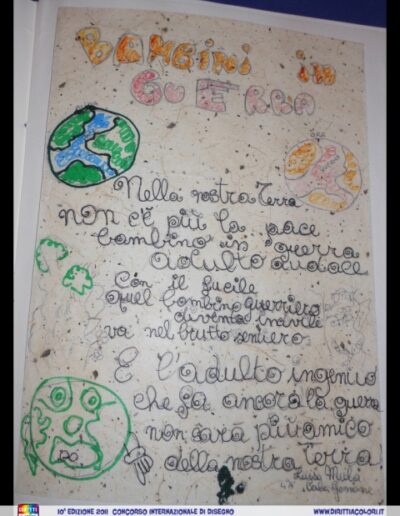 BAMBINI in
GUERRA
ORA
Nella nostra Terra
non c'è più la pace
bambino in guerra
adulto audace
Con il fucile
quel bambino guerriero
diventa incivile
va nel brutto sentiero
E l'adulto ingenuo
che fa ancora la guerra
non sarà più amico
della nostra Terra
Luisa Mula
10° EDIZIONE 2011 CONCORSO INTERNAZIONALE DI DISEGNO
WWW.DIRITTIACOLORI.IT